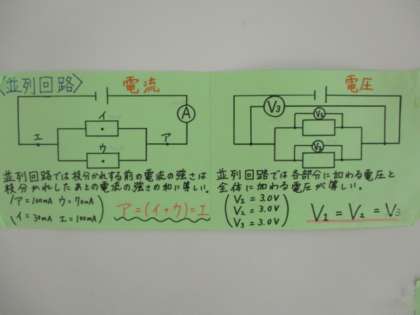 〈並列回路〉 電流
A
エ
イ
ウ
ア
並列回路では枝分かれする前の電流の強さは
枝分かれしたあとの電流の強さの和に等しい。
(ア=100mA ウ=70mA
イ=30mA エ=100mA)
ア=(イ+ウ)=エ
電圧
V3
V1
V2
並列回路では各部分に加わる電圧と
全体に加わる電圧が等しい。
V1=3.0V
V2=3.0V
V3=3.0V
V1=V2=V3